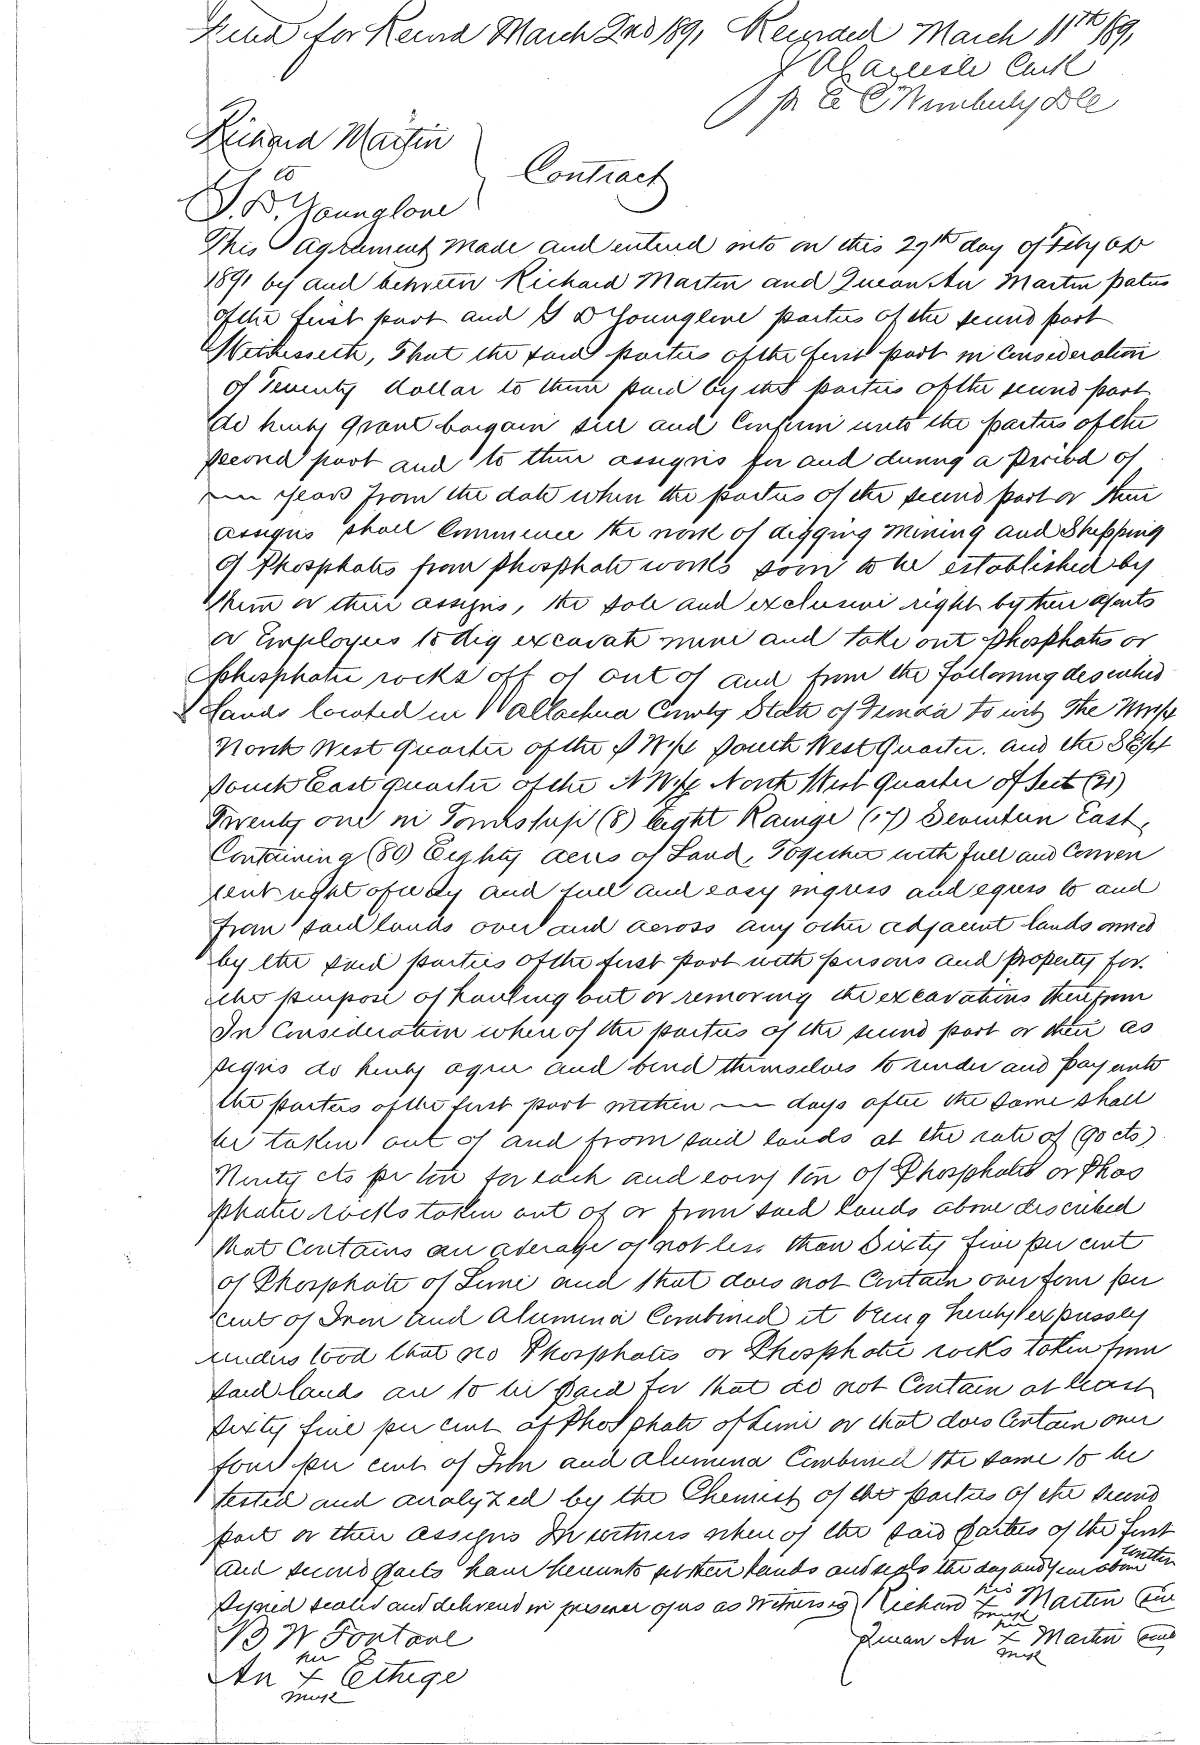 Filed for Record March 2nd 1891 Recorded March 11th 1891
J A Carlisle Clerk
pr E C Wimberly D C
Richard Martin
to
Contract
S. D. Younglove
This Agreement Made and entered into on this 27th day of Feby AD
1891 by and between Richard Martin and Quean An Martin paties
of the first part and S D Younglove parties of the second part
Witnesseth, That the said parties of the first part in Consideration
of Seventy dollar to them paid by the parties of the second part
do hereby grant bargain sell and Confirm unto the parties of the
second part and to their assigns for and during a Period of
— years from the date when the parties of the second part or their
assigns shall Commence the work of digging Mining and Shipping
of Phosphates from phosphate works soon to be established by
them or their assigns, the sole and exclusive right by their agents
or Employees to dig excavate mine and take out phosphates or
phosphatic rocks off of out of and from the following described
lands located in Allachua County State of Florida to wit The NW1/4
North West quarter of the SW1/4 South West Quarter. and the SE1/4
South East quarter of the NW1/4 North West Quarter of Sect (21)
Twenty one in Township (8) Eight Rainge (17) Seventeen East,
Containing (80) Eighty acres of Land, Together with full and Conven
ient right of way and full and easy ingress and egress to and
from said lands over and across any other adjacent lands owned
by the said parties of the first part with persons and property for
the purpose of hauling out or removing the excavations therefrom
In Consideration where of the parties of the second part or their as
signs do hereby agree and bind themselves to render and pay unto
the parties of the first part within — days after the same shall
be taken out of and from said lands at the rate of (90 cts)
Ninety cts per ton for each and every ton of Phosphates or Phos
phatic rocks taken out of or from said lands above discribed
that Contains an average of not less than Sixty five per cent
of Phosphate of Lime and that does not Contain over four per
cent of Iron and Alumina Combined it being hereby expressly
understood that no Phosphates or Phosphatic rocks taken from
said lands are to be paid for that do not Contain at least
sixty five per cent of Phosphate of Lime or that does Contain over
four per cent of Iron and Alumina Combined the same to be
tested and analyzed by the Chemist of the parties of the second
part or their assigns In witness where of the said parties of the first
and second parts have hereunto set their hands and seals the day and year above written
Signed sealed and delivered in presence of us as Witnesses Richard his x mark Martin seal
B W Fontane Quean An her x mark Martin seal
An her x mark Ethege